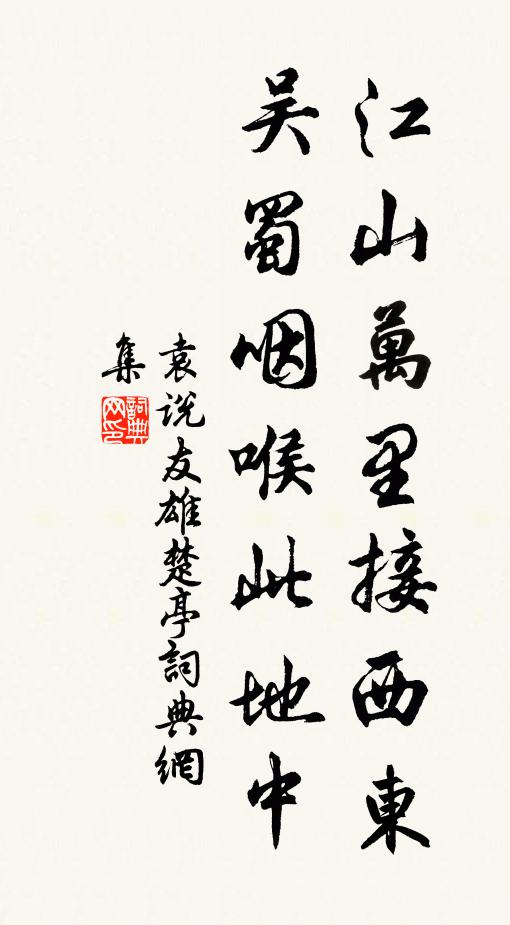 江山萬里接西東
吴蜀咽喉此地中
袁说友雄楚亭詞典網
集
詞典
网印